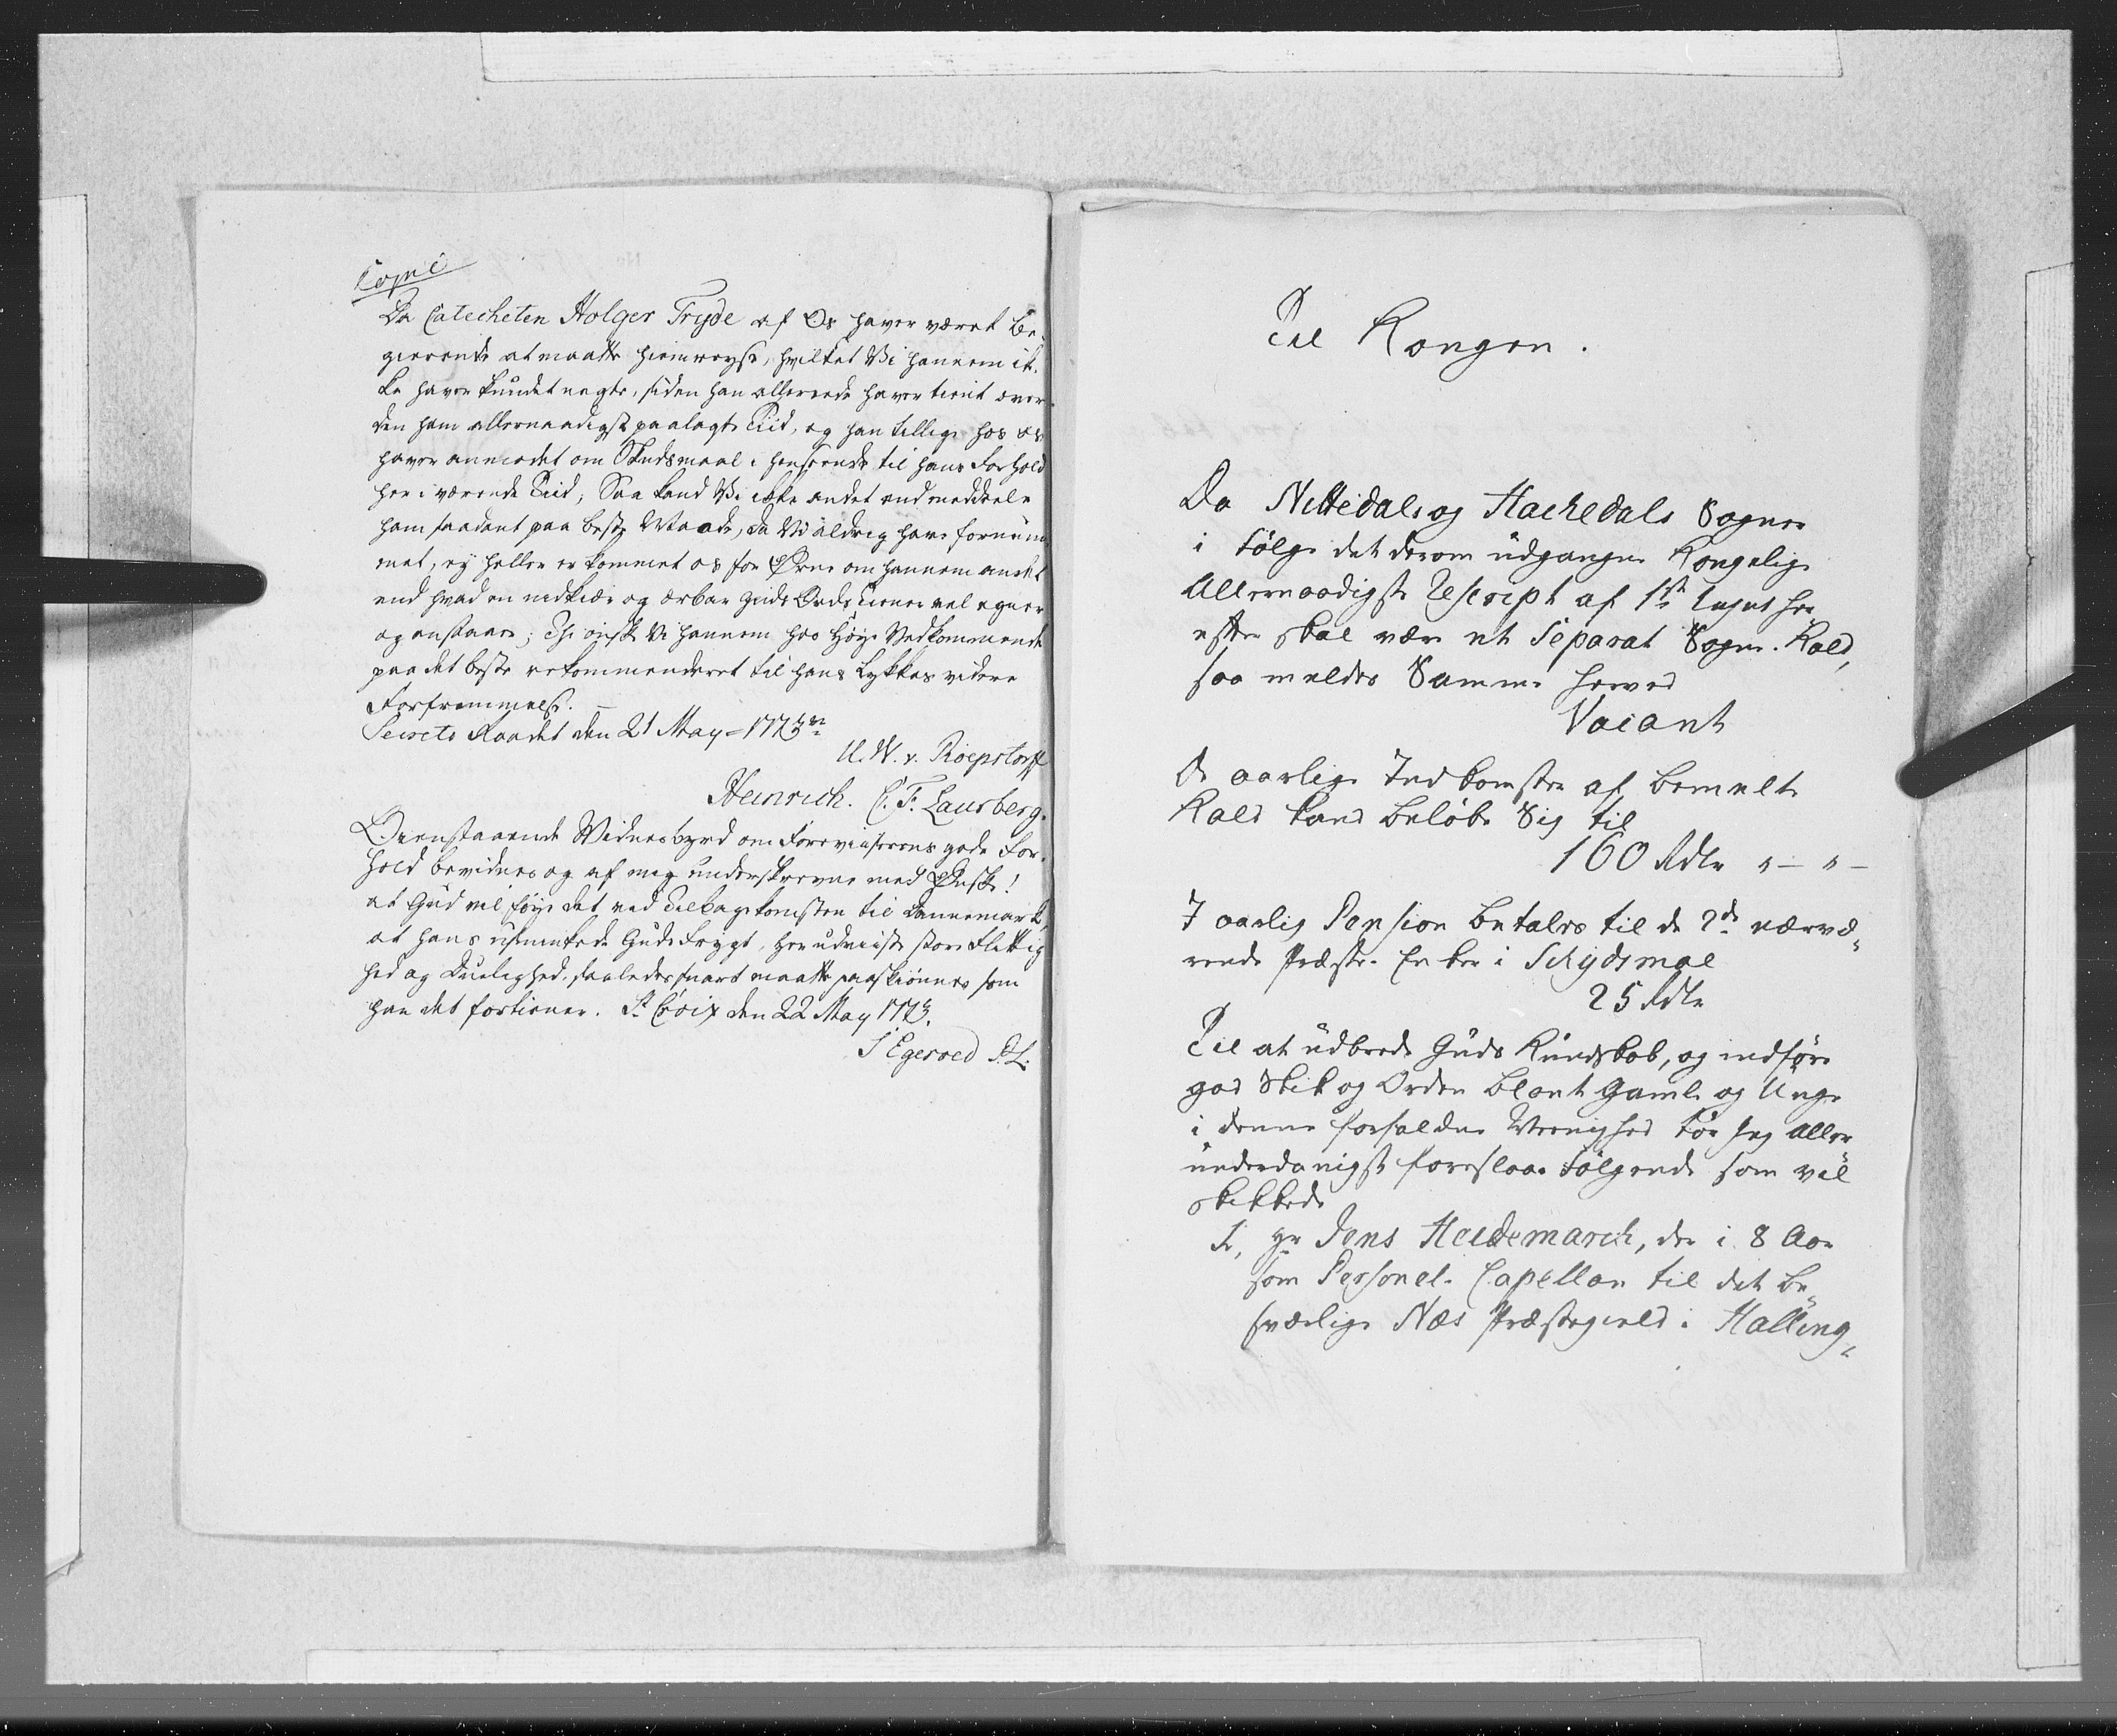 Copie
Da Catecheten Holger Tryde af Os haver været be-
gierende at maatte hiemreyse, hvilket Vi hannem ik-
ke haver kundet negte, siden han allereede haver tient over
den ham allernaadigst paalagte Tiid, og han tillige hos os
haver anmodet om Skudsmaal i henseende til hans Forhold
her i værende Tiid; Saa kand Vi ikke andet end meddeele
ham saadant paa beste Maade, da Vi aldrig have fornum-
met, ey heller er kommet os for Øren om hannem andet
end hvad en nidkiær og ærbar Guds Ords Tiener vel egner
og anstaaer; Thi ønske Vi hannem hos Høye Vedkommende
paa det beste rekommenderet til hans Lykkes videre
Forfremmelse. –
Secrete Raadet den 21 May = 1773
U. W. v. Roepstorff
Heinrich. C. F. Lausberg.
Ovenstaaende Vidnesbyrd om Foreviiserens gode For-
hold bevidnes og af mig underskrevne med Ønske!
at Gud vil føye det ved Tilbagekomsten til Dannemark,
at hans Gudsfrygt, her udviiste store Flittig
hed og Duelighed, saaledes snart maatte paaskiønnes som
han det fortiener. St Croix den 22 May 1773.
J Egeroed
Til Kongen.
Da Nittedals og Hachedals Sogner
i Følge det derom udgangne Kongelige
Allernaadigste Rescript af 1ste hujus her
efter skal være et Separat Sogne-Kald,
saa meldes Samme herved
Vacant
De aarlige Indkomster af bemelte
Kald kand beløbe Sig til
160 Rdlr „ – „ –
I aarlig Pension betales til de 2de nærvæ„
rende Præste-Enker i Schydsmoe
25 Rdlr
Til at udbrede Guds Kundskab, og indføre
god Skik og Orden blant Gamle og Unge
i denne forfaldne Meenighed tør jeg aller
underdanigst foreslaae Følgende som vel
skikkede
Hr Jens Heidemarch, der i 8 Aar
som Personel-Capellan til det be„
sværlige Næs Præstegield i Halling„